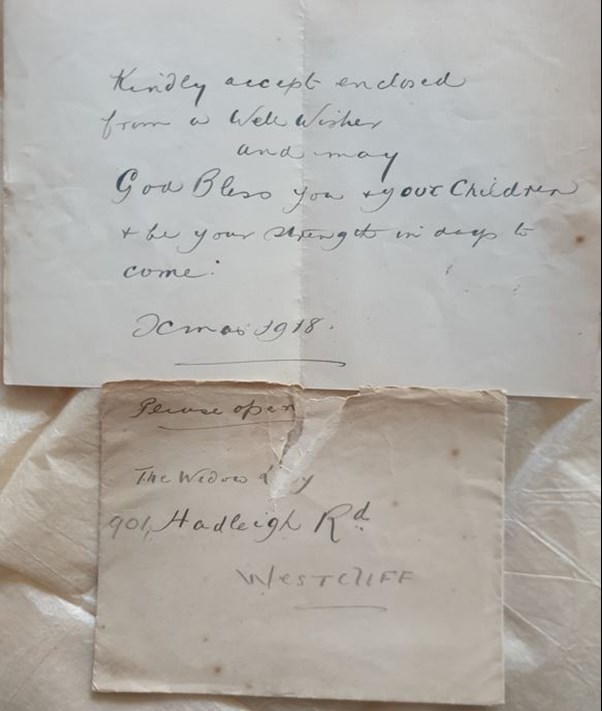 Kindly accept enclosed
from a Well Wisher
and may
God Bless you & your Children
& be your strength in days to
come.
Xmas 1918.
Please open
The Widow
901, Hadleigh Rd
WESTCLIFF